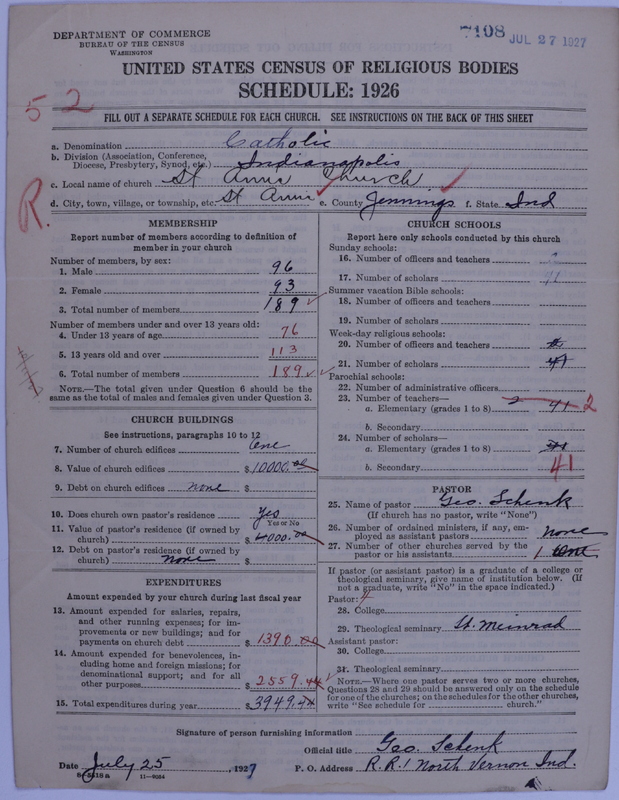 DEPARTMENT OF COMMERCE
BUREAU OF THE CENSUS
WASHINGTON
7108 JUL 27 1927
UNITED STATES CENSUS OF RELIGIOUS BODIES
SCHEDULE: 1926
52
FILL OUT A SEPARATE SCHEDULE FOR EACH CHURCH. SEE INSTRUCTIONS ON THE BACK OF THIS SHEET
a. Denomination Catholic
b. Division (Association, Conference,
Diocese, Presbytery, Synod, etc.) Indianapolis
c. Local name of church St Anns Church
d. City, town, village, or township, etc. St Ann e. County Jennings f. State Ind
R.
MEMBERSHIP
Report number of members according to definition of
member in your church
Number of members, by sex:
1. Male 96
2. Female 93
3. Total number of members 189
Number of members under and over 13 years old:
4. Under 13 years of age 76
5. 13 years old and over 113
6. Total number of members 189
NOTE.—The total given under Question 6 should be the
same as the total of males and females given under Question 3.
CHURCH BUILDINGS
See instructions, paragraphs 10 to 12
7. Number of church edifices One
8. Value of church edifices $10000.00
9. Debt on church edifices none $
10. Does church own pastor's residence Yes
Yes or No
11. Value of pastor's residence (if owned by
church) $4000.00
12. Debt on pastor's residence (if owned by
church) none $
EXPENDITURES
Amount expended by your church during last fiscal year
13. Amount expended for salaries, repairs,
and other running expenses; for im-
provements or new buildings; and for
payments on church debt $1390.00
14. Amount expended for benevolences, in-
cluding home and foreign missions; for
denominational support; and for all
other purposes $2559.44
15. Total expenditures during year $3949.44
CHURCH SCHOOLS
Report here only schools conducted by this church
Sunday schools:
16. Number of officers and teachers
17. Number of scholars 41
Summer vacation Bible schools:
18. Number of officers and teachers
19. Number of scholars
Week-day religious schools:
20. Number of officers and teachers
21. Number of scholars 41
Parochial schools:
22. Number of administrative officers
23. Number of teachers—
a. Elementary (grades 1 to 8) 2 41 2
b. Secondary
24. Number of scholars—
a. Elementary (grades 1 to 8)
b. Secondary 41
PASTOR
25. Name of pastor Geo. Schenk
(If church has no pastor, write "None")
26. Number of ordained ministers, if any, em-
ployed as assistant pastors none
27. Number of other churches served by the
pastor or his assistants 1 one
If pastor (or assistant pastor) is a graduate of a college or
theological seminary, give name of institution below. (If
not a graduate, write "No" in the space indicated.)
Pastor:
28. College
29. Theological seminary St. Meinrad
Assistant pastor:
30. College
31. Theological seminary
NOTE.—Where one pastor serves two or more churches,
Questions 28 and 29 should be answered only on the schedule
for one of the churches; on the schedules for the other churches,
write "See schedule for church."
Signature of person furnishing information
Official title Geo. Schenk
Date July 25, 1927 P. O. Address R.R.1 North Vernon Ind.
8-5518a 11—9064